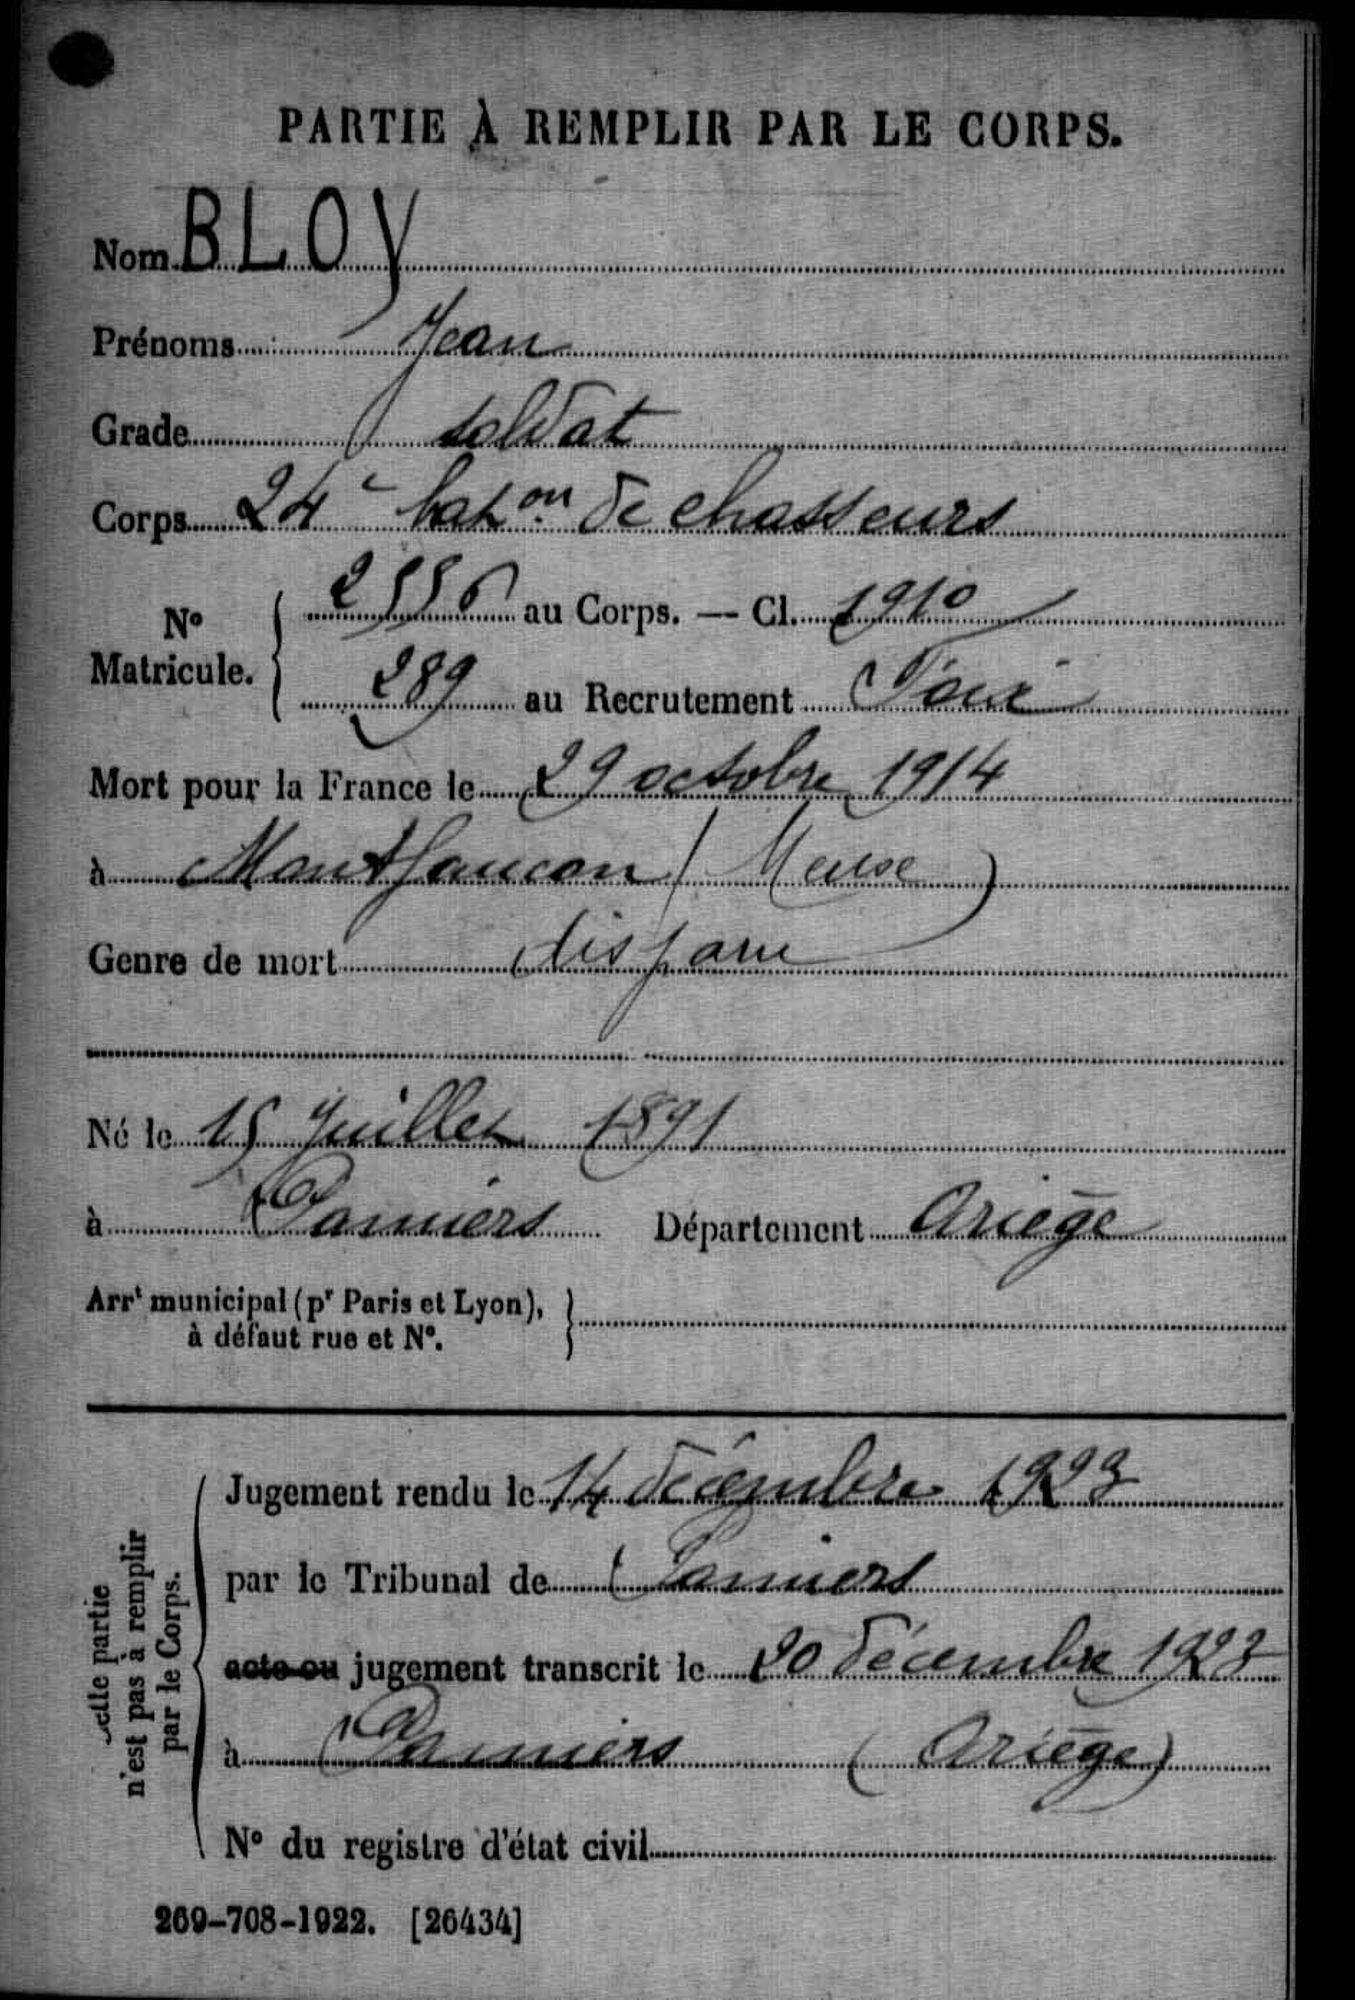 PARTIE À REMPLIR PAR LE CORPS.
Nom BLOY
Prénoms Jean
Grade soldat
Corps 24e bat.on de chasseurs
No Matricule. { 2556 au Corps. — Cl. 1910
289 au Recrutement Foix
Mort pour la France le 29 octobre 1914
à Montfaucon (Meuse)
Genre de mort disparu
Né le 15 Juillet 1891
à Pamiers Département Ariège
Arrt municipal (pr Paris et Lyon), }
à défaut rue et No.
Cette partie
n'est pas à remplir
par le Corps.
Jugement rendu le 14 décembre 1923
par le Tribunal de Pamiers
acte ou jugement transcrit le 20 décembre 1923
à Pamiers (Ariège)
No du registre d'état civil
269-708-1922. [26434]